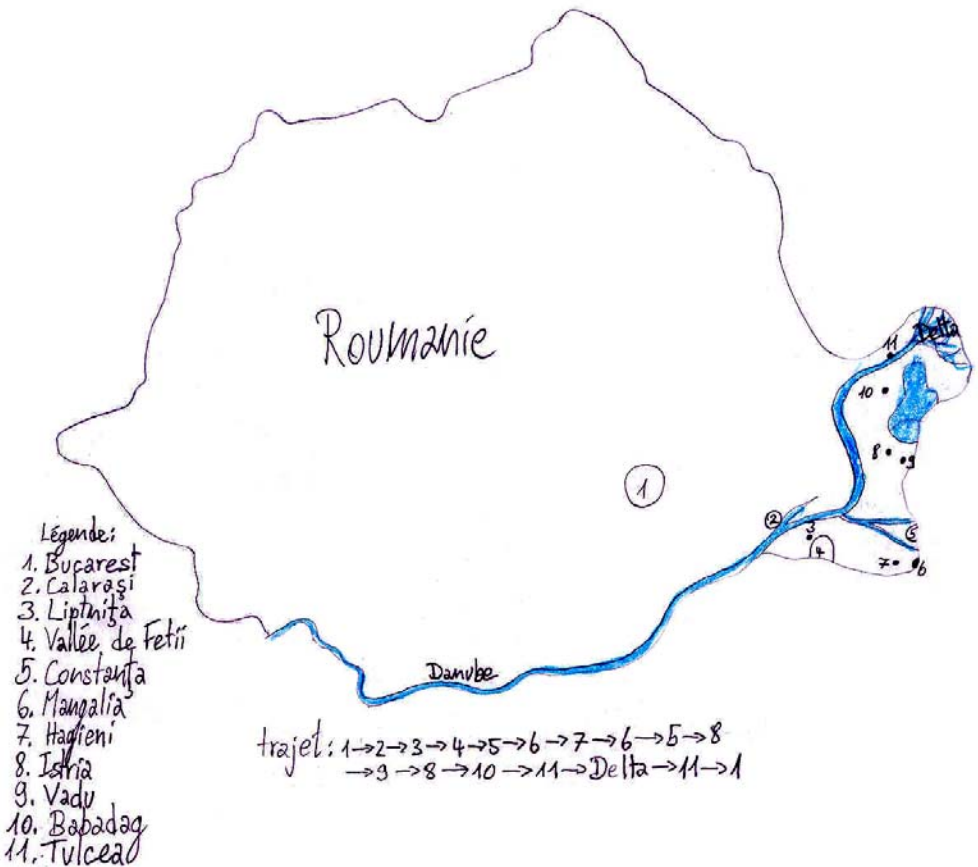 Roumanie
Delta
11
10
8
9
1
2
3
5
4
7
6
Danube
Légende:
1. Bucarest
2. Calaraşi
3. Liptniţa
4. Vallée de Fetii
5. Constanţa
6. Mangalia
7. Hagieni
8. Istria
9. Vadu
10. Babadag
11. Tulcea
trajet: 1→2→3→4→5→6→7→6→5→8
→9→8→10→11→Delta→11→1